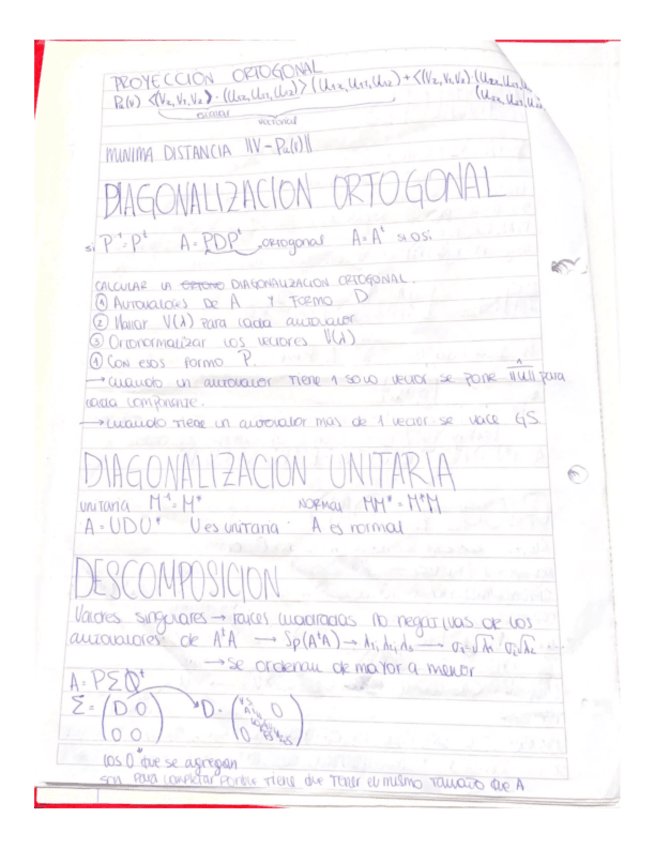 PROYECCION ORTOGONAL
P₂(v) <(V₂, V₁, V₂) · (U₁₂, U₁₁, U₁₂)> (U₁₂, U₁₁, U₁₂) + <(V₂, V₁, V₂) · (U₂₂, U₂₁,
escalar vectorial
MINIMA DISTANCIA ||V - P₂(v)||
DIAGONALIZACION ORTOGONAL
si P⁻¹ = Pᵗ A = PDPᵗ ortogonal A = Aᵗ si o si
CALCULAR LA DIAGONALIZACION ORTOGONAL.
① Autovalores DE A Y FORMO D
② Hallar V(λ) Para cada autovalor
③ Ortonormalizar los vectores V(λ)
④ CON esos formo P.
→ cuando un autovalor TIENE 1 solo vector se pone 1/||u|| para
cada componente.
→ cuando tiene un autovalor mas de 1 vector se hace GS
DIAGONALIZACION UNITARIA
unitaria M⁻¹ = M* NORMAL MM* = M*M
A = UDU* U es unitaria A es normal
DESCOMPOSICION
Valores singulares → raices cuadradas no negativas de los
autovalores de AᵗA → Sp(AᵗA) → λ₁, λ₂, λ₃ → σ₁=√λ₁ σ₂√λ₂ ...
→ se ordenan de mayor a menor
A = PΣQᵗ
Σ = (D 0
0 0) D =
los 0 que se agregan
son para completar porque tiene que tener el mismo tamaño que A